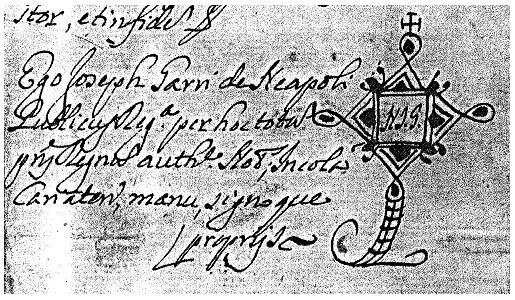 stor, et in fide
Ego Joseph Garri de Neapoli
Publicus Reg.ª per hoc totu
Regnu auth.e Not.s, Incola
manu, signoque
proprijs
N.J.G.